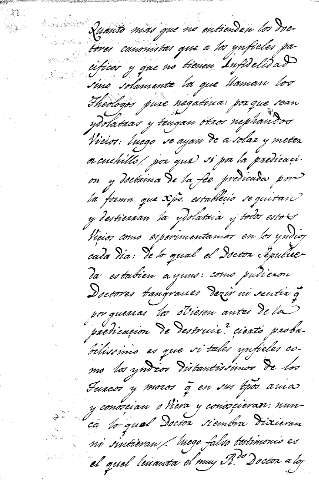 Quanto mas que no entienden los doc-
tores canonistas que a los ynfieles pa-
cificos y que no tienen Ynfidelidad
sino solamente la que llaman los
Theologos pure negativa: porque sean
ydolatras y tengan otros nephandos
Vicios: luego se ayan de asolar y meter
a cuchillo/ por que si por la predicaci-
on y doctrina de la fee predicada por
la forma que xpo. establecio se quitan
y destierran la ydolatria y todos estos
Vicios como experimentamos en los yndios
cada dia: de lo qual el Doctor
estabien ayuno: como pudieron
Doctores tan graves dezir ni sentir q̃
por guerras los antes de la
predicacion de destruir? cierto proba-
bilissimo es que si tales ynfieles co-
mo los yndios distantissimos de los
Turcos y moros q̃ en sus tp̃os avia
y conoscian Viera y conoscieran: nun-
ca lo qual Doctor siembra dixeran
ni sintieran/. luego falso testimonio es
el qual levanta el muy R.do Doctor a los